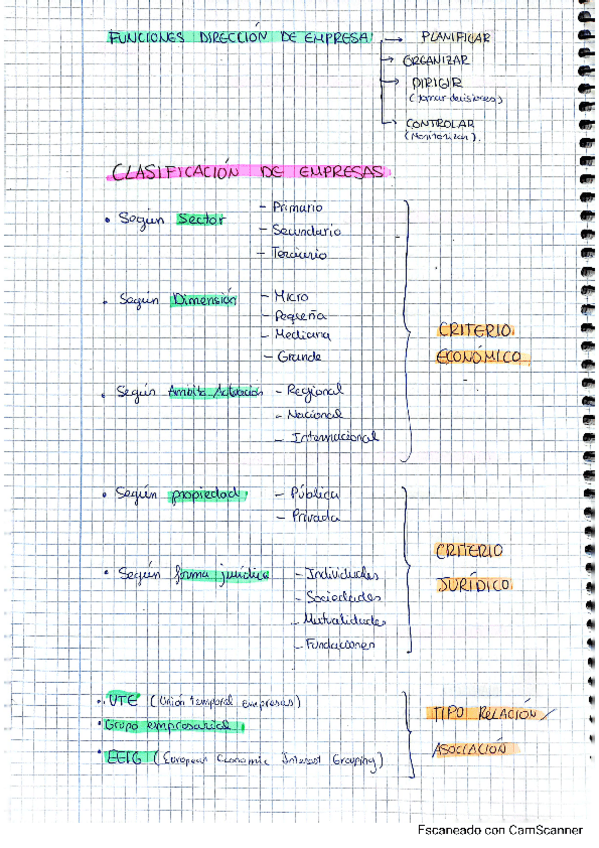 FUNCIONES DIRECCIÓN DE EMPRESA: → PLANIFICAR
→ ORGANIZAR
→ DIRIGIR
(tomar decisiones)
→ CONTROLAR
(Monitorizar).
CLASIFICACIÓN DE EMPRESAS
• Según Sector - Primario
- Secundario
- Terciario
• Según Dimensión - Micro
- Pequeña
- Mediana
- Grande
CRITERIO
ECONÓMICO
• Según Ámbito Actuación - Regional
- Nacional
- Internacional
• Según propiedad - Pública
- Privada
CRITERIO
JURÍDICO
• Según forma jurídica - Individuales
- Sociedades
- Mutualidades
- Fundaciones
• UTE (Unión temporal empresas)
• Grupo empresarial
• EEIG (European Economic Interest Grouping)
TIPO RELACIÓN/
ASOCIACIÓN
Escaneado con CamScanner